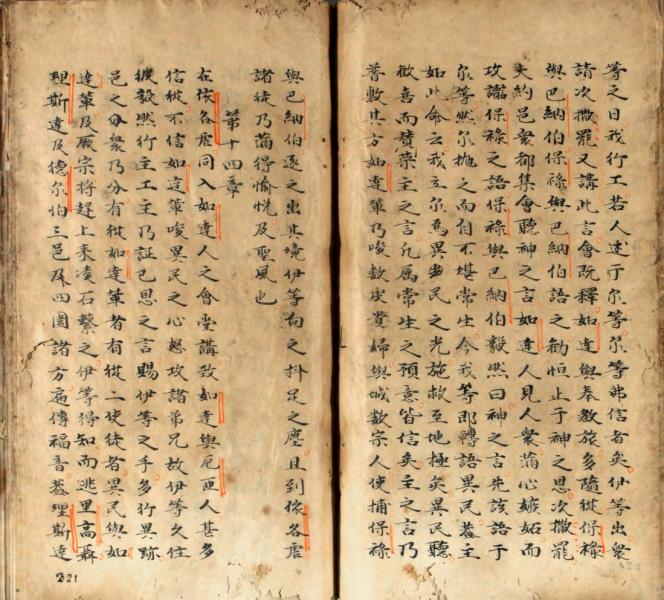 等之日我行工若人述于尔等尔等弗信者矣伊等出衆
請次撒罷又講此言會既釋如達與奉教旅多隨從保祿
與巴納伯保祿與巴納伯語之勸恒止于神之恩次撒罷
大約邑衆都集會聽神之言如達人見人衆蒲心嫉妬而
攻謗保祿之語保祿與巴納伯毅然曰神之言先該語于
尔等然尔抛之而自不堪常生今我等即轉語異民葢主
如此命云我立尔為異邦民之光施救至地極矣異民聽
歡喜而賛榮主之言凡属常生之預意皆信矣主之言乃
普敷其方如達軰乃唆数虔貴婦與城数宗人使捕保祿
與巴納伯逐之出其境伊等向之抖足之塵且到依各唐
諸徒乃蒲得愉悦及聖風也
第十四章
在依各唐同入如達人之會堂講致如達與厄匝人甚多
信彼不信如達軰唆異民之心怒攻諸弟兄故伊等久住
彼毅然行主工主乃証己恩之言賜伊等之手多行異跡
邑之分衆乃分有從如達軰者有從二使徒者異民與如
達軰及厥宗將趕上来凌石擊之伊等得知而逃里高聶
理斯達及德尔伯三邑及四圍諸方遍傳福音葢理斯達
221